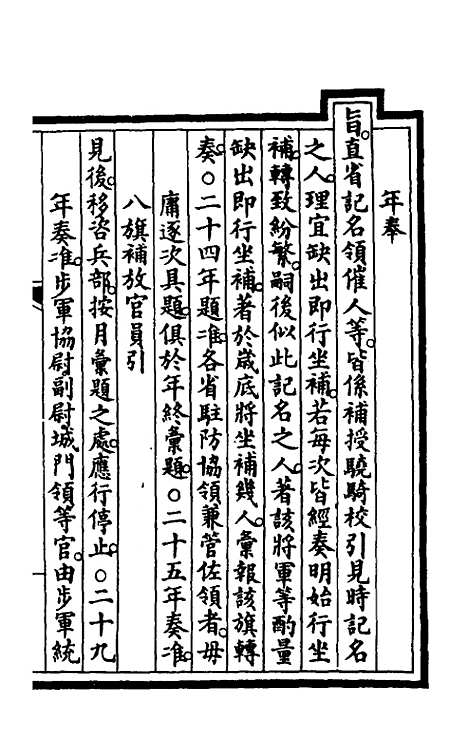 年奉
旨。直省記名領催人等。皆係補授驍騎校引見時記名
之人。理宜缺出即行坐補。若每次皆經奏明始行坐
補。轉致紛繁。嗣後似此記名之人。著該將軍等酌量
缺出即行坐補。著於嵗底將坐補幾人。彙報該旗轉
奏。○二十四年題准。各省駐防協領兼管佐領者。毋
庸逐次具題。俱於年終彙題。○二十五年奏准。
八旗補放官員引
見後。移咨兵部。按月彙題之處。應行停止。○二十九
年奏准。步軍協尉。副尉。城門領等官。由步軍統